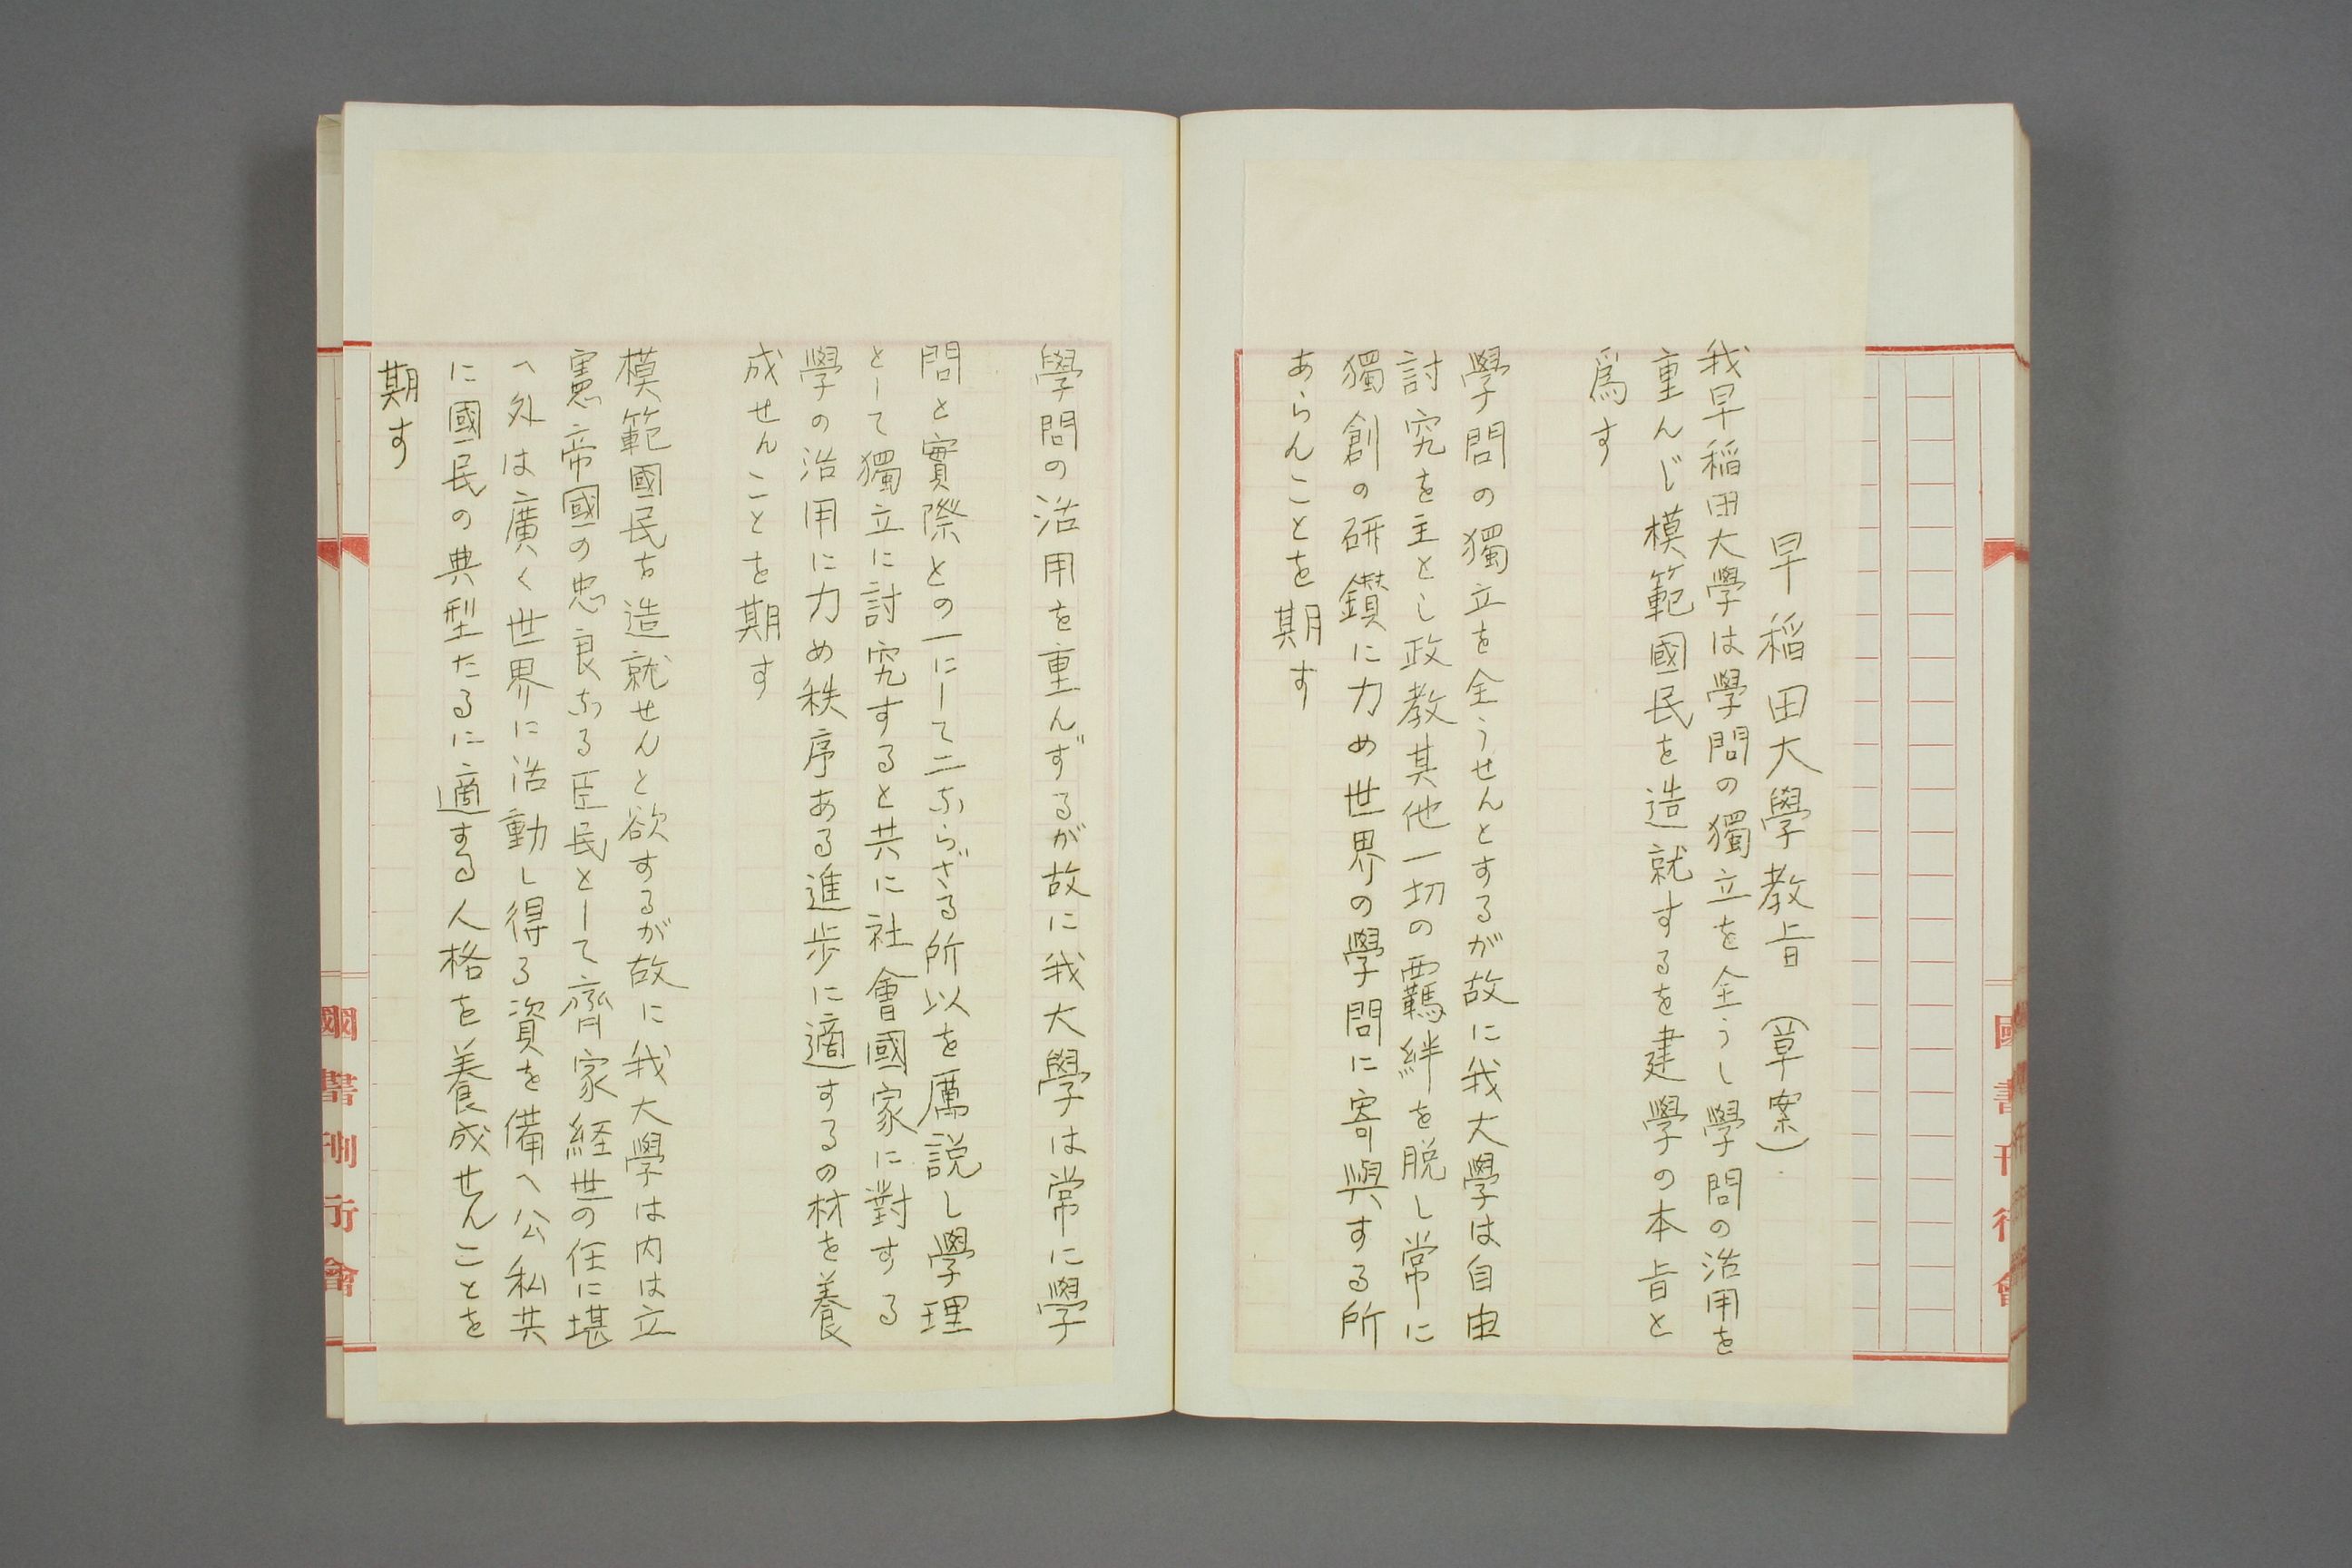 早稲田大學教旨（草案）
我早稲田大學は學問の獨立を全うし學問の活用を
重んじ模範國民を造就するを建學の本旨と
爲す
學問の獨立を全うせんとするが故に我大學は自由
討究を主とし政教其他一切の覊絆を脱し常に
獨創の研鑚に力め世界の學問に寄與する所
あらんことを期す
學問の活用を重んずるが故に我大學は常に學
問と實際との一にして二ならざる所以を厲説し學理
として獨立に討究すると共に社會國家に對する
學の活用に力め秩序ある進歩に適するの材を養
成せんことを期す
模範國民を造就せんと欲するが故に我大學は内は立
憲帝國の忠良なる臣民として齊家経世の任に堪
へ外は廣く世界に活動し得る資を備へ公私共
に國民の典型たるに適する人格を養成せんことを
期す
國書刊行會
國書刊行會